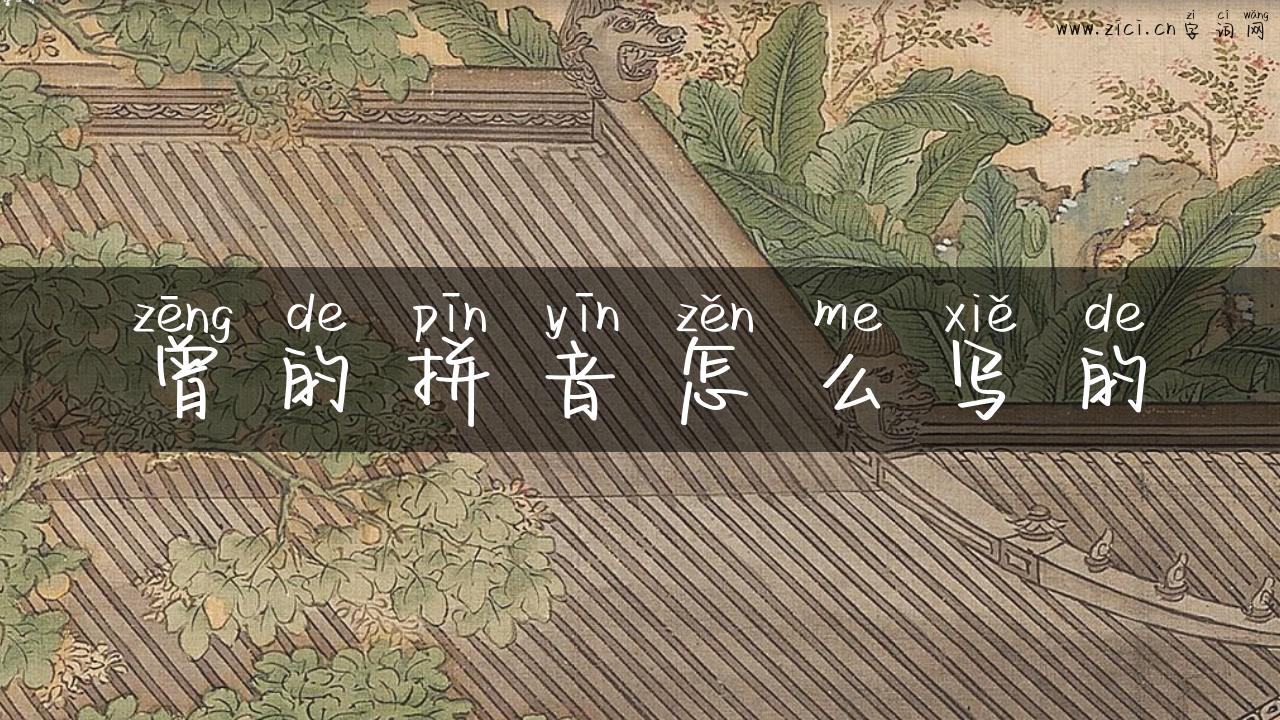 zì cí wǎng
www.zici.cn 字词网
zēng de pīn yīn zěn me xiě de
曾的拼音怎么写的